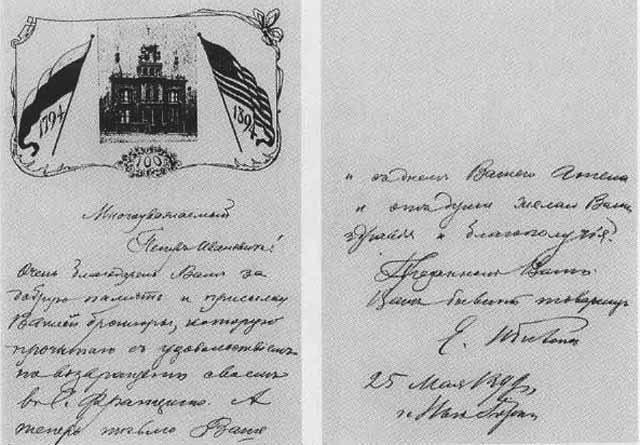 1794
1894
100
Многоуважаемый
Петръ Ивановичъ!
Очень благодаренъ Вамъ за
добрую память и присылку
Вашей брошюры, которую
прочитаю съ удовольствіемъ
по возвращеніи своемъ
въ С. Францизко. А
теперь только Ваше
и Вашего Ангела
и отъ души желаю Вамъ
здравія и благополучія.
Преданный Вамъ
Вашъ бывшій товарищъ
25 Мая